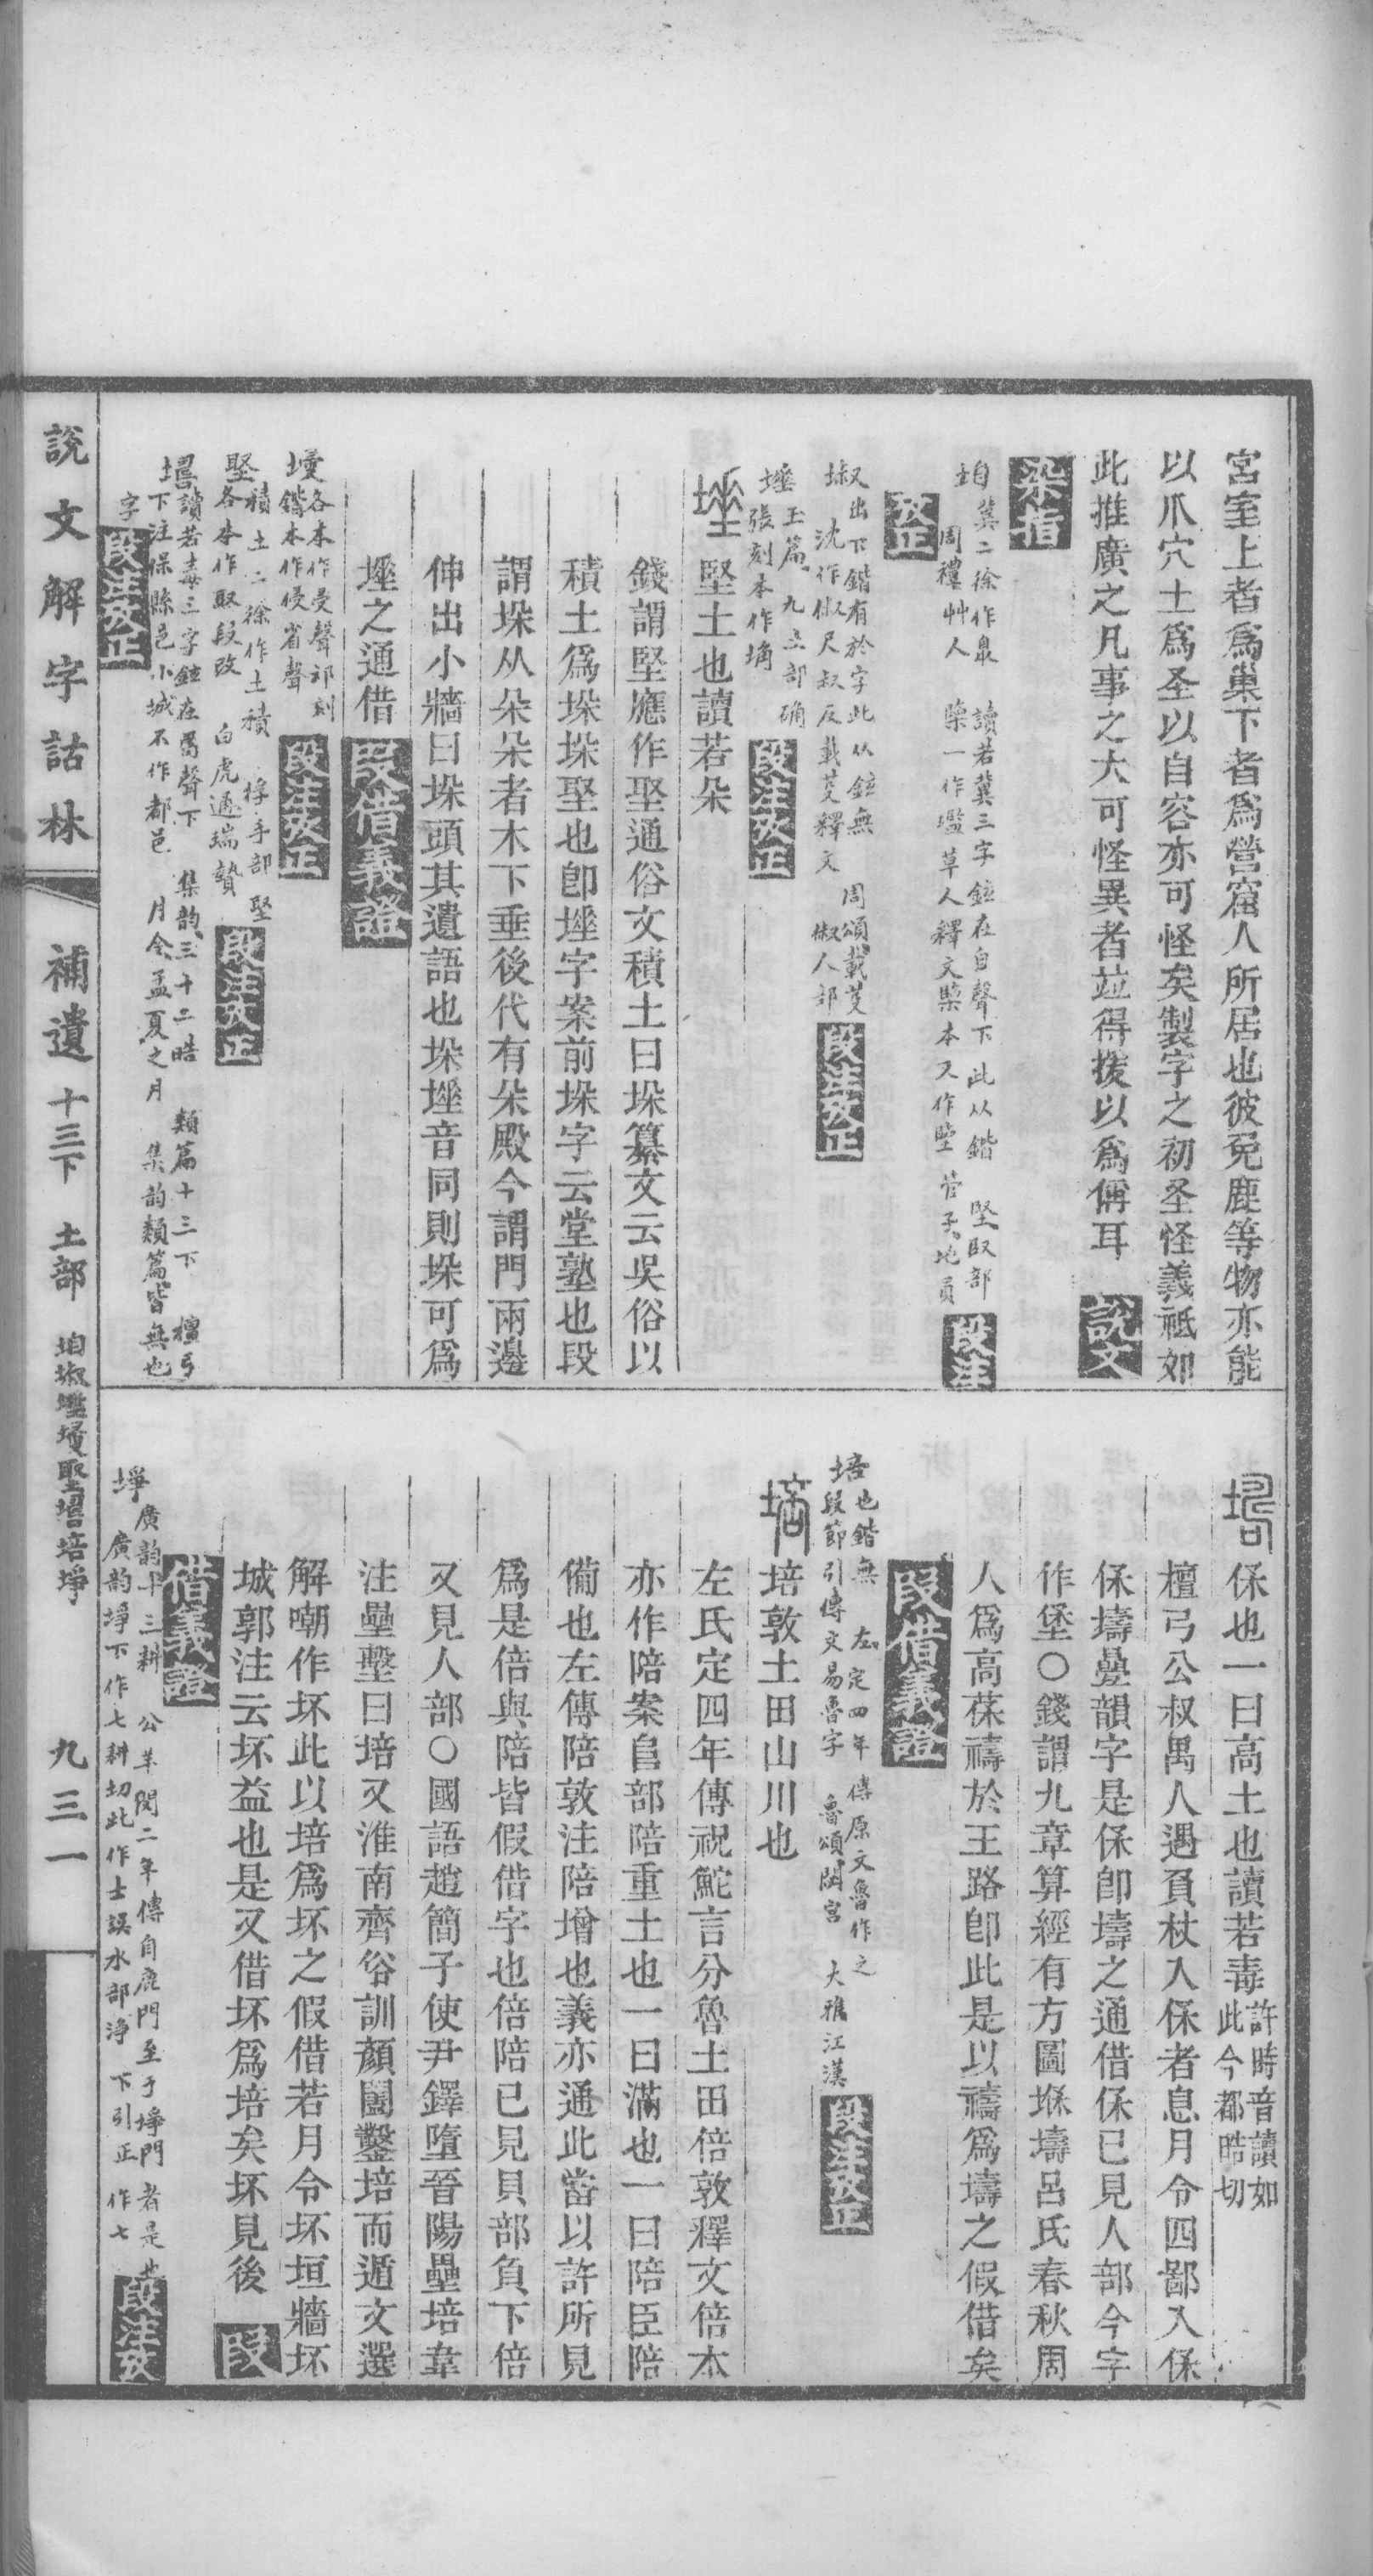 宮室上者爲巢下者爲營窟人所居也彼兔鹿等物亦能
以爪穴土爲圣以自容亦可怪矣製字之初圣怪義祇如
此推廣之凡事之大可怪異者竝得援以爲偁耳 說文
垍冀二徐作臮 讀若冀三字鉉在自聲下此从鍇 堅臤部
周禮艸人 㯺一作壏 草人釋文㯺本又作壏 菅子地員 段注
攷正
埱又出下鍇有於字此从鉉無 周頌載芟
沈作俶尺叔反載芟釋文 俶人部 段注攷正
埵玉篇九土部确
張刻本作埆 段注攷正
埵 堅土也讀若朵
錢謂堅應作聖通俗文積土曰垛纂文云吳俗以
積土爲垛垛聖也卽埵字案前垛字云堂塾也段
謂垛从朵朵者木下垂後代有朵殿今謂門兩邊
伸出小牆曰垛頭其遺語也垛埵音同則垛可爲
埵之通借 段借義證
各本作受聲祁刻
鍇本作侵省聲 段注攷正
積土二徐作土積 捊手部堅
各本作取段改 白虎通瑞贄 段注攷正
讀若毒三字鉉在聲下 集韵三十二晧 類篇十三下 檀弓
下注保縣邑小城不作都邑 月令孟夏之月 集韵類篇皆無也
字 段注攷正
保也一曰高土也讀若毒許時音讀如此今都晧切
檀弓公叔禺人遇負杖入保者息月令四鄙入保
保壔疊韻字是保卽壔之通借保已見人部今字
作堡〇錢謂九章算經有方圖堢壔呂氏春秋周
人爲高葆禱於王路卽此是以禱爲壔之假借矣
段借義證
培也鍇無 左定四年 傳原文魯作之
段節引傳文易魯字 魯頌閟宮 大雅江漢 段注攷正
培 培敦土田山川也
左氏定四年傳祝鮀言分魯土田倍敦釋文倍本
亦作陪案𨸏部陪重土也一曰滿也一曰陪臣陪
備也左傳陪敦注陪增也義亦通此當以許所見
爲是倍與陪皆假借字也倍陪已見貝部負下倍
又見人部〇國語趙簡子使尹鐸墮晉陽壘培韋
注壘墼曰培又淮南齊俗訓顏闔鑿培而遁文選
解嘲作坏此以培爲坏之假借若月令坏垣牆坏
城郭注云坏益也是又借坏爲培矣坏見後 段
借義證
埩廣韵十三耕 公羊閔二年傳自鹿門至于埩門者是也
廣韵埩下作七耕切此作士誤水部淨 下引正作七 段注攷
說文解字詁林 補遺 十三下 土部 垍埱埵培埩 九三一